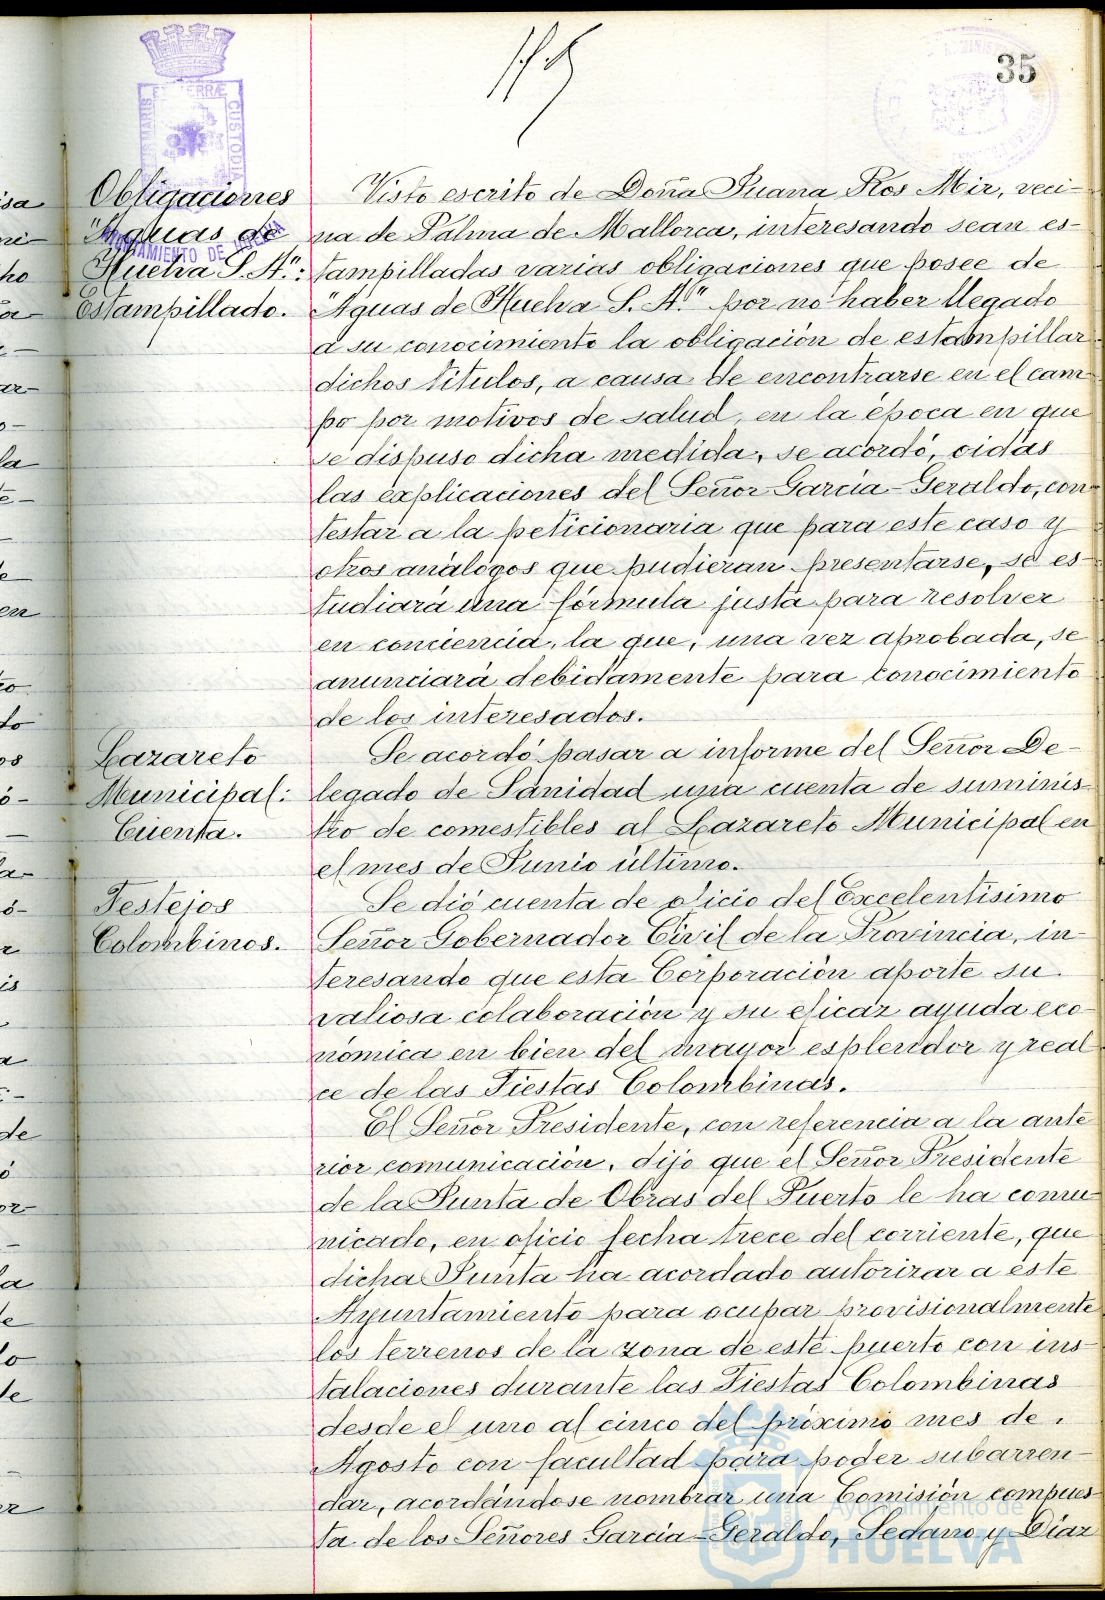 35
Obligaciones
"Aguas de
Huelva S. A.":
Estampillado.
Visto escrito de Doña Juana Ros Mir, veci-
na de Palma de Mallorca, interesando sean es-
tampilladas varias obligaciones que posee de
"Aguas de Huelva S. A." por no haber llegado
a su conocimiento la obligación de estampillar
dichos títulos, a causa de encontrarse en el cam-
po por motivos de salud, en la época en que
se dispuso dicha medida, se acordó, oidas
las explicaciones del Señor García-Geraldo, con-
testar a la peticionaria que para este caso y
otros análogos que pudieran presentarse, se es-
tudiará una fórmula justa para resolver
en conciencia, la que, una vez aprobada, se
anunciará debidamente para conocimiento
de los interesados.
Lazareto
Municipal:
Cuenta.
Se acordó pasar a informe del Señor De-
legado de Sanidad una cuenta de suminis-
tro de comestibles al Lazareto Municipal en
el mes de Junio último.
Festejos
Colombinos.
Se dió cuenta de oficio del Excelentísimo
Señor Gobernador Civil de la Provincia, in-
teresando que esta Corporación aporte su
valiosa colaboración y su eficaz ayuda eco-
nómica en bien del mayor esplendor y real-
ce de las Fiestas Colombinas.
El Señor Presidente, con referencia a la ante
rior comunicación, dijo que el Señor Presidente
de la Junta de Obras del Puerto le ha comu-
nicado, en oficio fecha trece del corriente, que
dicha Junta ha acordado autorizar a este
Ayuntamiento para ocupar provisionalmente
los terrenos de la zona de este puerto con ins-
talaciones durante las Fiestas Colombinas
desde el uno al cinco del próximo mes de
Agosto con facultad para poder subarren-
dar, acordándose nombrar una Comisión compues-
ta de los Señores García-Geraldo, Sedano y Díaz
Ayuntamiento de
HUELVA